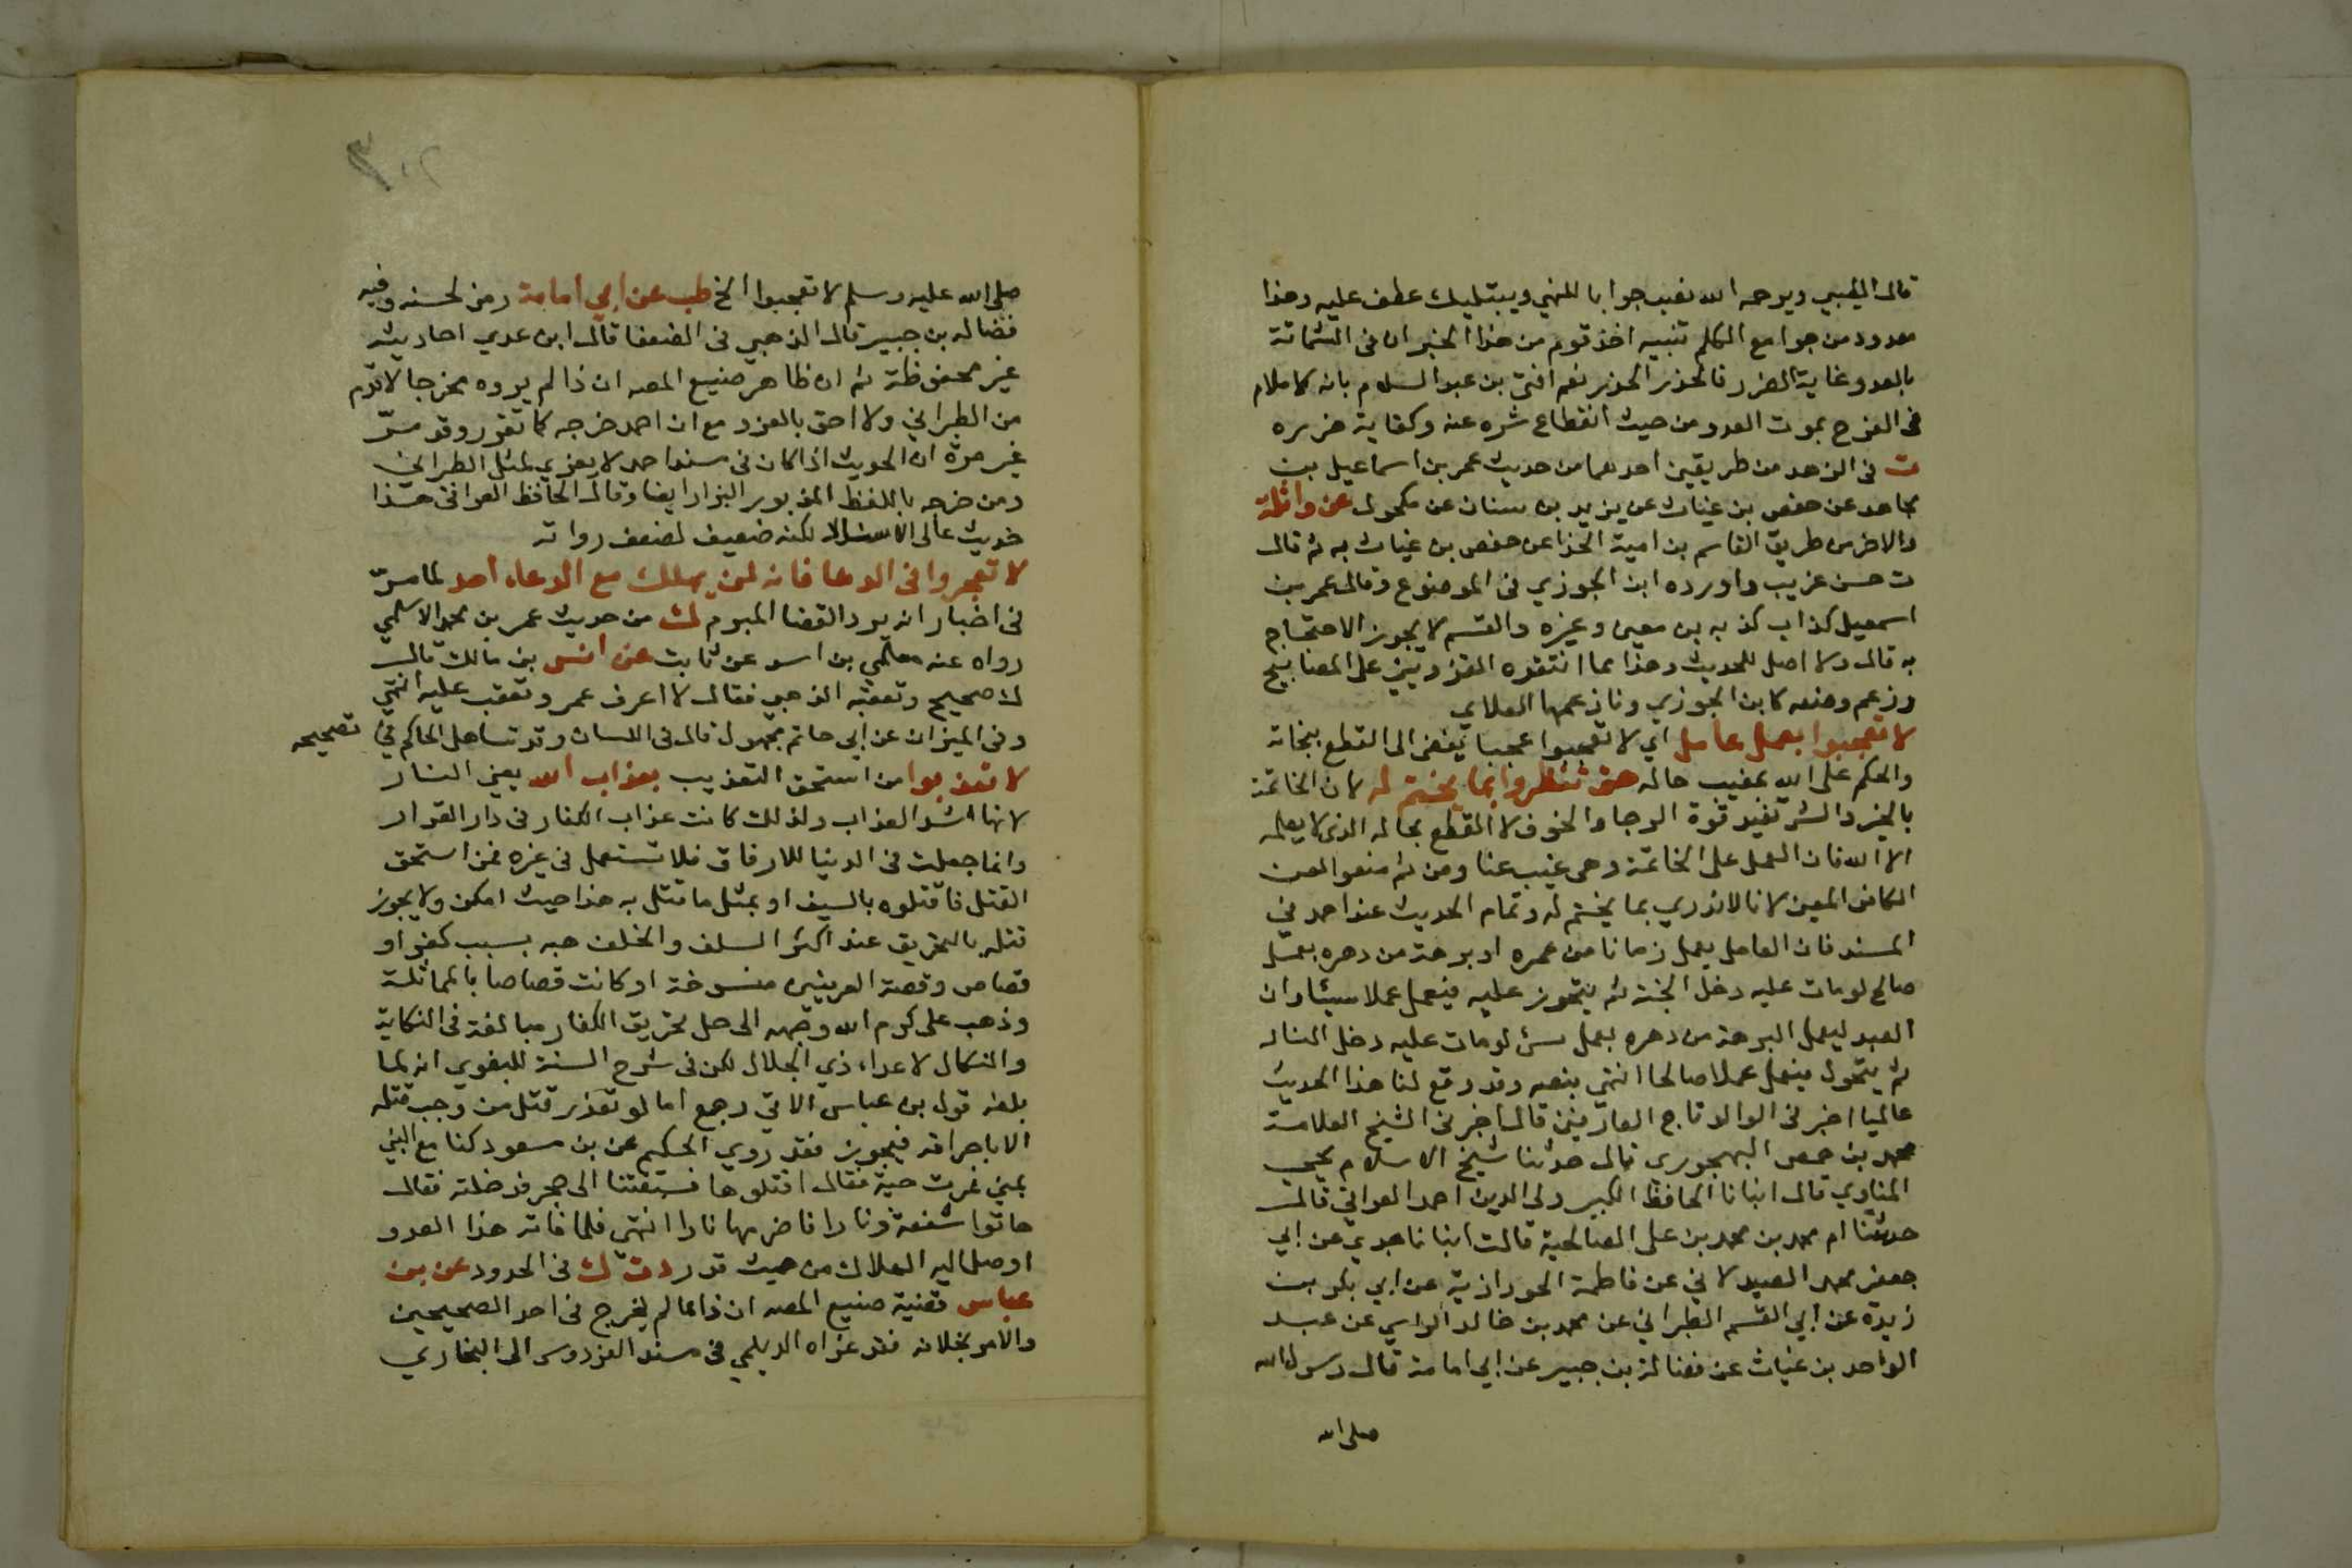 قال الطيبي ويرحمه الله نصب جوابا للنهي ويبتليك عطف عليه وهذا
معدود من جوامع الكلم تنبيه اخذ قوم من هذا الخبر ان في الشماتة
بالعدو غاية الضرر فالحذر الحذر نعم افتى بن عبد السلام بانه لا ملام
في الفرح بموت العدو من حيث انقطاع شره عنه وكفاية ضرره
ت في الزهد من طريقين احدهما من حديث عمر بن اسماعيل بن
مجاهد عن حفص بن غياث عن يزيد بن سنان عن مكحول عن واثلة
والاخر من طريق القاسم بن امية الحذا عن حفص بن غياث به ثم قال
ت حسن غريب واورده ابن الجوزي في الموضوع وقال عمر بن
اسمعيل كذاب كذبه بن معين وغيره والقسم لا يجوز الاحتجاج
به قال ولا اصل للحديث وهذا مما انتقده القزويني على المصابيح
وزعم وضعه كابن الجوزي ونازعهما العلاي
لا تعجبوا بعمل عامل اي لا تعجبوا عجبا يفضى الى القطع بنجاته
والحكم على الله بمغيب حاله حتى تنظروا بما يختم له لان الخاتمة
بالخير والشر تفيد قوة الرجا والخوف لا القطع بحاله الذي لا يعلمه
الا الله فان العمل على الخاتمة وهي غيب عنا ومن ثم منعوا لعن
الكافر المعين لانا لا ندري بما يختم له وتمام الحديث عند احمد في
المسند فان العامل يعمل زمانا من عمره او برهة من دهره بعمل
صالح لو مات عليه دخل الجنة ثم يتحول عليه فيعمل عملا سيئا وان
العبد ليعمل البرهة من دهره بعمل سئ لو مات عليه دخل النار
ثم يتحول فيعمل عملا صالحا انتهى بنصه وقد وقع لنا هذا الحديث
عاليا اخبرني الوالد تاج العارفين قال اخبرني الشيخ العلامة
محمد بن حمص البهجوري قال حدثنا شيخ الاسلام يحيى
المناوي قال انبانا الحافظ الكبير ولي الدين احمد العراقي قال
حدثتنا ام محمد بن محمد بن على الصالحية قالت انبانا جدي عن ابي
جعفر محمد الصيدلاني عن فاطمة الجوزذانية عن ابي بكر بن
زيدة عن ابي القسم الطبراني عن محمد بن خالد الراسي عن عبد
الواحد بن غياث عن فضالة بن جبير عن ابي امامة قال رسول الله
صلى الله
صلى الله عليه وسلم لا تعجبوا الخ طب عن ابي امامة رمز لحسنه وفيه
فضاله بن جبير قال الذهبي في الضعفا قال ابن عدي احاديثه
غير محفوظة ثم ان ظاهر صنيع المص ان ذا لم يروه مخرجا لاقدم
من الطبراني ولا احق بالعزو مع ان احمد خرجه كما تقرر وقد مر
غير مرة ان الحديث اذا كان في مسند احمد لا يعزي لمثل الطبراني
ومن خرجه باللفظ المزبور البزار ايضا وقال الحافظ العراقي هذا
حديث عالى الاسناد لكنه ضعيف لضعف رواته
لا تعجزوا في الدعا فانه لن يهلك مع الدعاء احد لما مر
في اخبار انه يرد القضا المبرم ك من حديث عمر بن محمد الاسلمي
رواه عنه معلى بن اسد عن ثابت عن انس بن مالك قال
ك صحيح وتعقبه الذهبي فقال لا اعرف عمر وتعقب عليه انتهى
وفي الميزان عن ابي حاتم مجهول قال في اللسان وقد تساهل الحاكم في تصحيحه
لا تعذبوا من استحق التعذيب بعذاب الله يعني النار
لانها اشد العذاب ولذلك كانت عذاب الكفار في دار القرار
وانما جعلت في الدنيا للارفاق فلا تستعمل في غيره فمن استحق
القتل فاقتلوه بالسيف او بمثل ما قتل به هذا حيث امكن ولا يجوز
قتله بالتحريق عند اكثر السلف والخلف هبه بسبب كفر او
قصاص وقصة العرينين منسوخة او كانت قصاصا بالمماثلة
وذهب على كرم الله وجهه الى حل تحريق الكفار مبالغة في النكاية
والنكال لاعداء ذي الجلال لكن في شرح السنة للبغوي انه لما
بلغه قول بن عباس الاتي رجع اما لو تعذر قتل من وجب قتله
الا باحراقه فيجوز فقد روي الحكيم عن بن مسعود كنا مع النبي
بمنى فمرت حية فقال اقتلوها فسبقتنا الى جحر فدخلته فقال
هاتوا سعفة ونارا فاضرمها نارا انتهى فلما فاته هذا العدو
اوصل اليه الهلاك من حيث قدر د ت ك في الحدود عن بن
عباس قضية صنيع المص ان ذا مما لم يخرج في احد الصحيحين
والامر بخلافه فقد عزاه الديلمي في مسند الفردوس الى البخاري